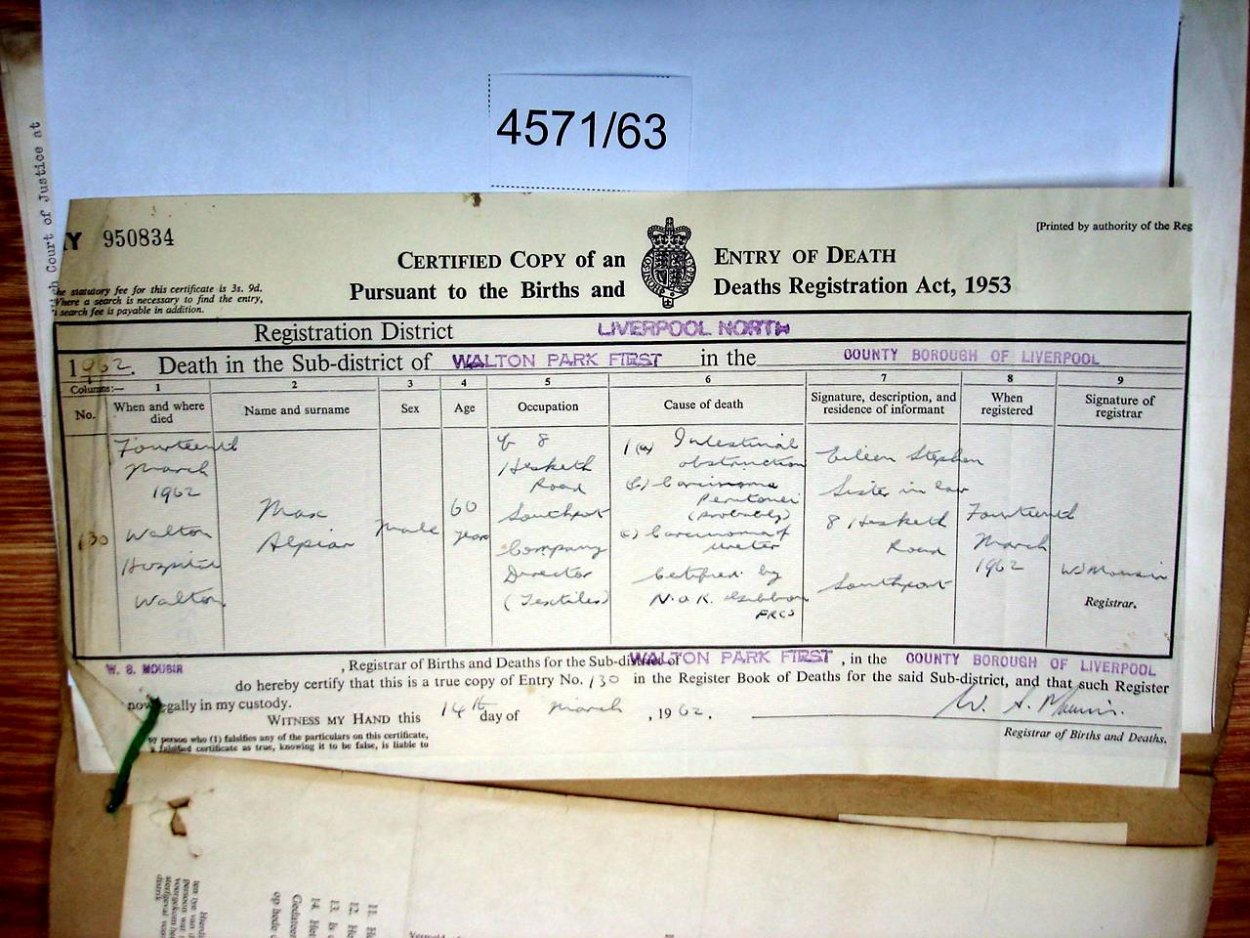 4571/63
Court of Justice at
Y 950834
[Printed by authority of the Reg
CERTIFIED COPY of an ENTRY OF DEATH
Pursuant to the Births and Deaths Registration Act, 1953
he statutory fee for this certificate is 3s. 9d.
Where a search is necessary to find the entry,
search fee is payable in addition.
Registration District LIVERPOOL NORTH
1962. Death in the Sub-district of WALTON PARK FIRST in the COUNTY BOROUGH OF LIVERPOOL
Columns:— 1 2 3 4 5 6 7 8 9
No. When and where died Name and surname Sex Age Occupation Cause of death Signature, description, and residence of informant When registered Signature of registrar
130
Fourteenth
March
1962
Walton
Hospital
Walton
Max
Alpiar
Male
60
years
8
Hesketh
Road
Southport
Company
Director
(Textiles)
1(a) Intestinal
obstruction
(b) Carcinoma
Peritonei
(probably)
c) Carcinoma of
Ureter
Certified by
N.O.K. Gibbon
FRCS
Eileen Stephen
Sister in law
8 Hesketh
Road
Southport
Fourteenth
March
1962
Registrar.
W. S. MOUSIR , Registrar of Births and Deaths for the Sub-district of WALTON PARK FIRST , in the COUNTY BOROUGH OF LIVERPOOL
do hereby certify that this is a true copy of Entry No. 130 in the Register Book of Deaths for the said Sub-district, and that such Register
now legally in my custody.
WITNESS MY HAND this 14th day of March , 1962.
Registrar of Births and Deaths.
person who (1) falsifies any of the particulars on this certificate,
a falsified certificate as true, knowing it to be false, is liable to
11.
12.
13.
14.
op hede